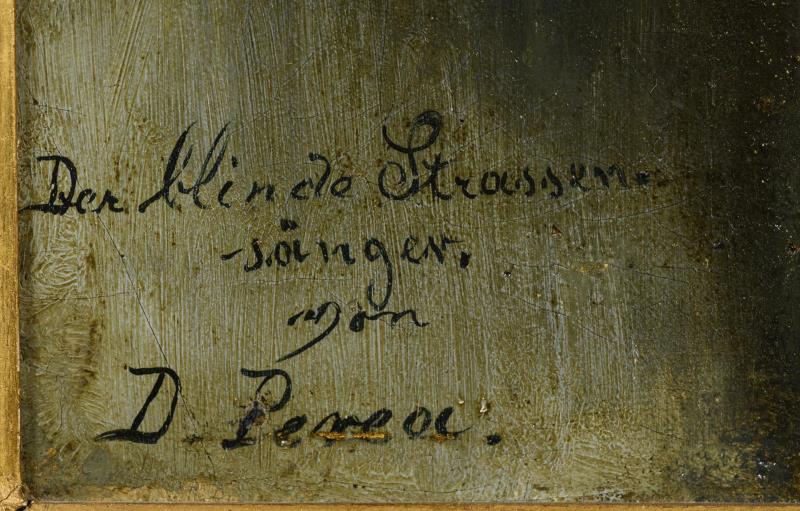 Der blinde Strassen-
-sänger.
von
D. Perea.